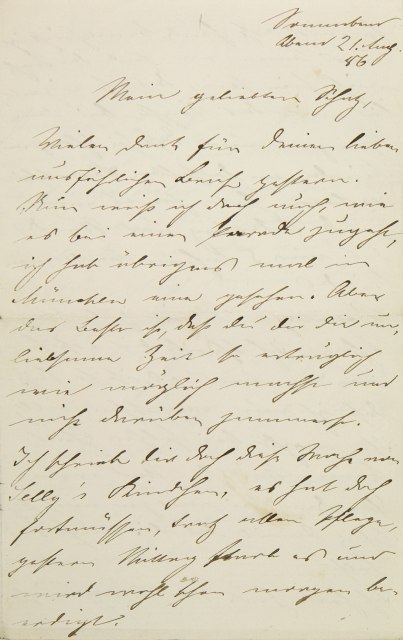 Sonnabend
Abend 21. Aug.
86
Mein geliebter Schatz,
Vielen Dank für Deinen lieben
ausführlichen Brief gestern.
Nun weiß ich doch auch, wie
es bei einer Parade zugeht,
ich hab übrigens mal in
München eine gesehen. Aber
das Beste ist, daß du dir die un-
liebsame Zeit so erträglich
wie möglich machst und
nicht darüber jammerst.
Ich schrieb dir doch diese Woche von
Telly's Kindchen, es hat doch
fortmüssen, trotz aller Pflege,
gestern Mittag starb es und
wird wohl schon morgen be-
erdigt.